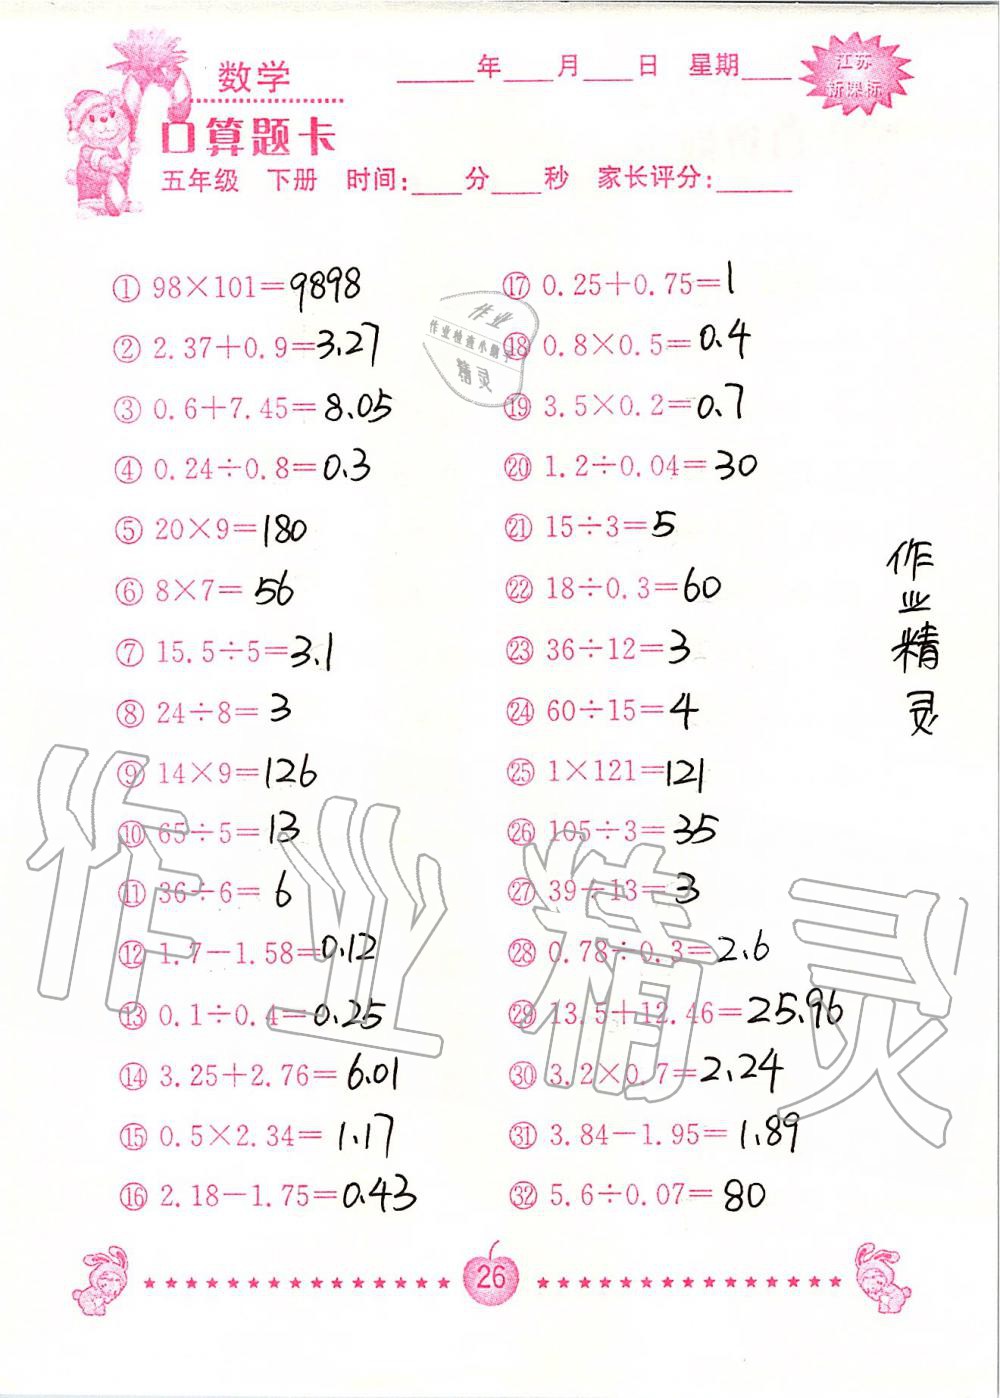 数学
____年____月____日 星期____
江苏
新课标
口算题卡
五年级 下册 时间:____分____秒 家长评分:______
① 98×101=9898
② 2.37+0.9=3.27
③ 0.6+7.45=8.05
④ 0.24÷0.8=0.3
⑤ 20×9=180
⑥ 8×7=56
⑦ 15.5÷5=3.1
⑧ 24÷8=3
⑨ 14×9=126
⑩ 65÷5=13
⑪ 36÷6=6
⑫ 1.7-1.58=0.12
⑬ 0.1÷0.4=0.25
⑭ 3.25+2.76=6.01
⑮ 0.5×2.34=1.17
⑯ 2.18-1.75=0.43
⑰ 0.25+0.75=1
⑱ 0.8×0.5=0.4
⑲ 3.5×0.2=0.7
⑳ 1.2÷0.04=30
㉑ 15÷3=5
㉒ 18÷0.3=60
㉓ 36÷12=3
㉔ 60÷15=4
㉕ 1×121=121
㉖ 105÷3=35
㉗ 39÷13=3
㉘ 0.78÷0.3=2.6
㉙ 13.5+12.46=25.96
㉚ 3.2×0.7=2.24
㉛ 3.84-1.95=1.89
㉜ 5.6÷0.07=80
作业
作业检查小助手
精灵
作业精灵
作业精灵
26